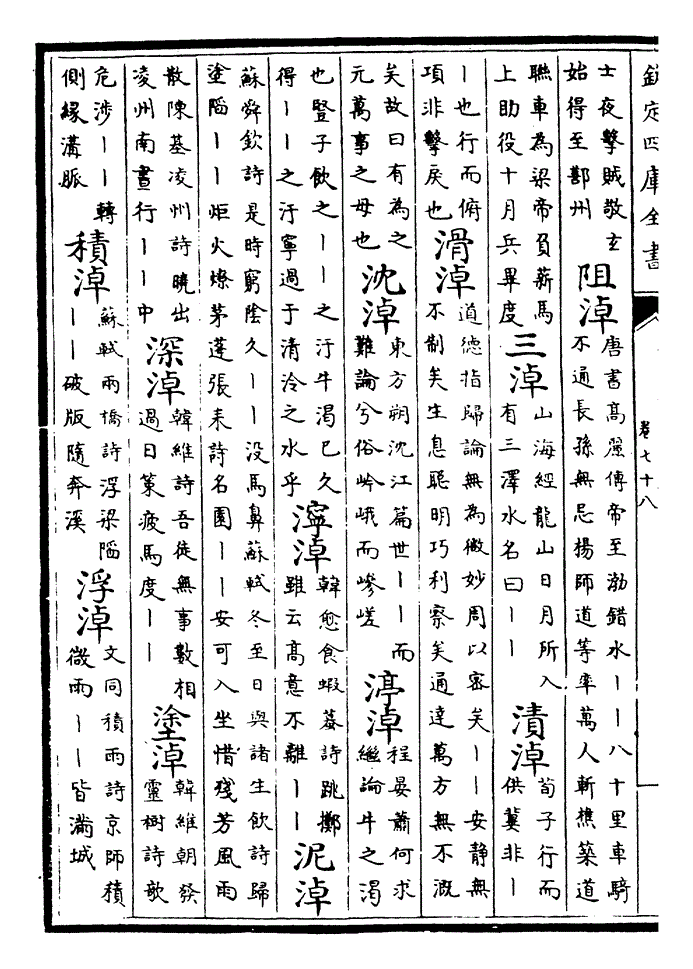 欽定四庫全書
卷七十八
士夜擊賊敬玄
始得至鄯州
阻淖
唐書高麗傳帝至渤錯水丨丨八十里車騎
不通長孫無忌揚師道等率萬人斬樵築道
聯車為梁帝負薪馬
上助役十月兵畢度
三淖
山海經龍山日月所入
有三澤水名曰丨丨
漬淖
荀子行而
供冀非丨
丨也行而俯
項非擊戾也
滑淖
道德指歸論無為微妙周以密矣丨丨安静無
不制矣生息聰明巧利察矣通達萬方無不溉
矣故曰有為之
元萬事之母也
沈淖
東方朔沈江篇世丨丨而
難論兮俗岒峨而嵾嵯
渟淖
程晏蕭何求
繼論牛之渴
也豎子飲之丨丨之汙牛渴已久
得丨丨之汙寧過于清泠之水乎
濘淖
韓愈食蝦蟇詩跳擲
雖云高意不離丨丨
泥淖
蘇舜欽詩是時窮陰久丨丨没馬鼻蘇軾冬至日與諸生飲詩歸
塗陷丨丨炬火燎茅蓬張耒詩名園丨丨安可入坐惜殘芳風雨
散陳基凌州詩曉出
凌州南晝行丨丨中
深淖
韓維詩吾徒無事數相
過日策疲馬度丨丨
塗淖
韓維朝發
靈樹詩欹
危涉丨丨轉
側緣溝脈
積淖
蘇軾兩橋詩浮梁陷
丨丨破版隨奔溪
浮淖
文同積雨詩京師積
微雨丨丨皆滿城